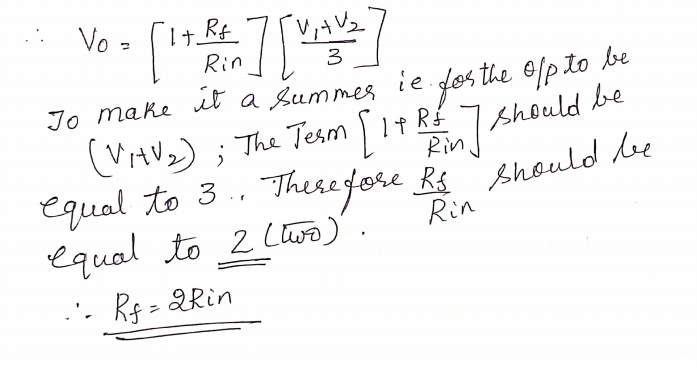 ∴ Vo = [1 + Rf/Rin] [(V1+V2)/3]
To make it a summer ie. for the o/p to be
(V1+V2) ; The Term [1 + Rf/Rin] should be
equal to 3. . Therefore Rf/Rin should be
equal to 2 (two) .
∴ Rf = 2Rin